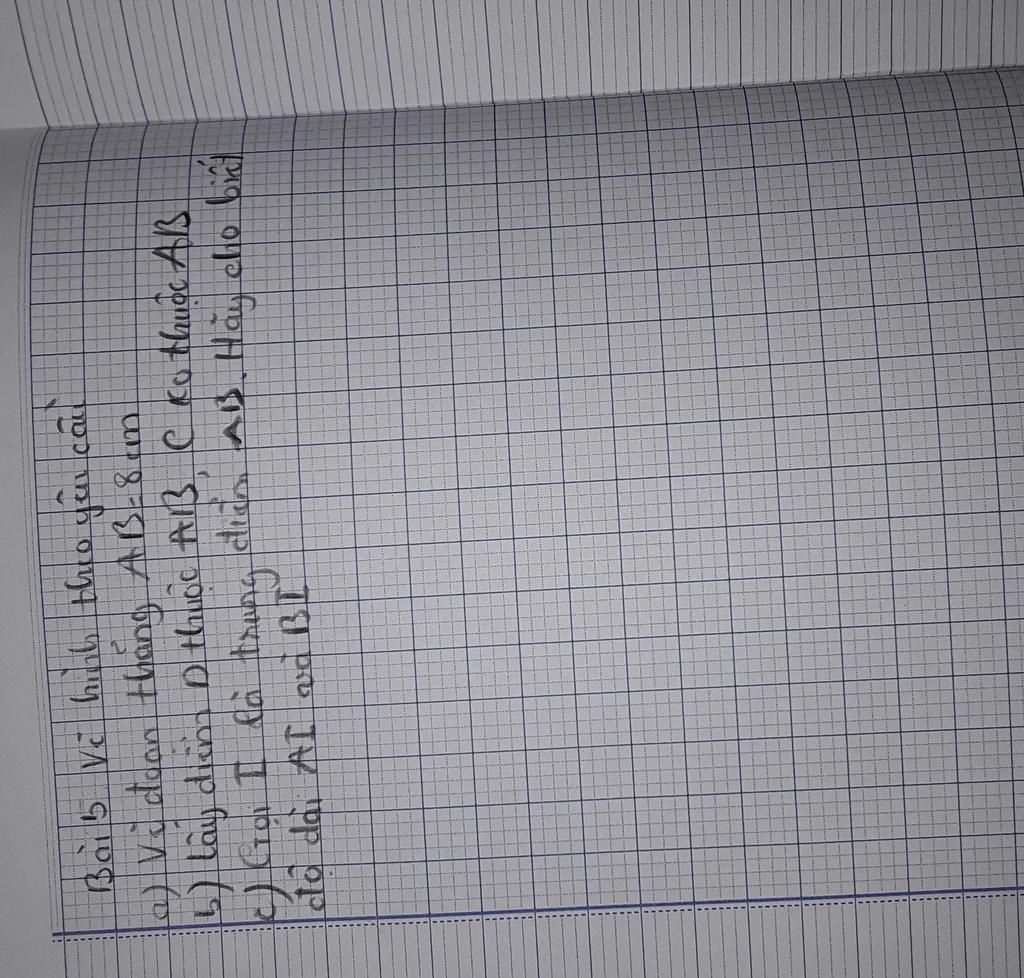 Bài 5 Vẽ hình theo yêu cầu
a) Vẽ đoạn thẳng AB = 8 cm
b) lấy điểm D thuộc AB, C ko thuộc AB
c) Gọi I là trung điểm AB. Hãy cho biết
độ dài AI và BI